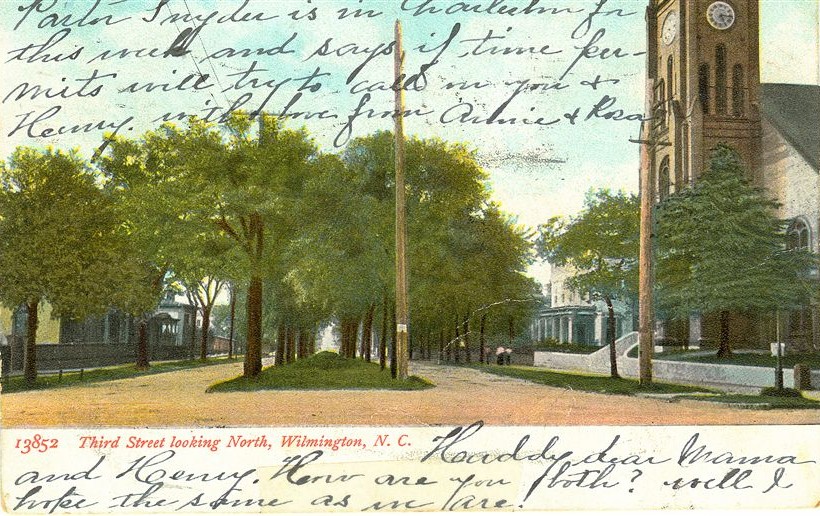 Parlor Snyder is in Charleston for
this week and says if time per-
mits will try to call in you &
Henry. with love from Annie & Rosa
13852 Third Street looking North, Wilmington, N. C.
Howddy dear Mama
and Henry. How are you both? well I
hope the same as we are.